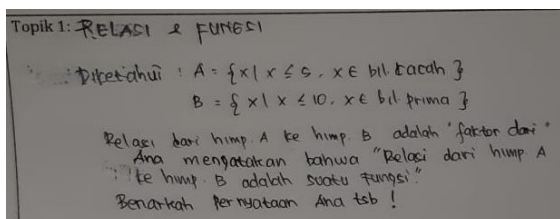 Topik 1: RELASI & FUNGSI
Diketahui : A = {x | x ≤ 5, x ∈ bil. cacah }
B = { x | x ≤ 10, x ∈ bil. prima }
Relasi dari himp. A ke himp. B adalah "faktor dari"
Ana mengatakan bahwa "Relasi dari himp A
ke himp. B adalah suatu fungsi."
Benarkah pernyataan Ana tsb !